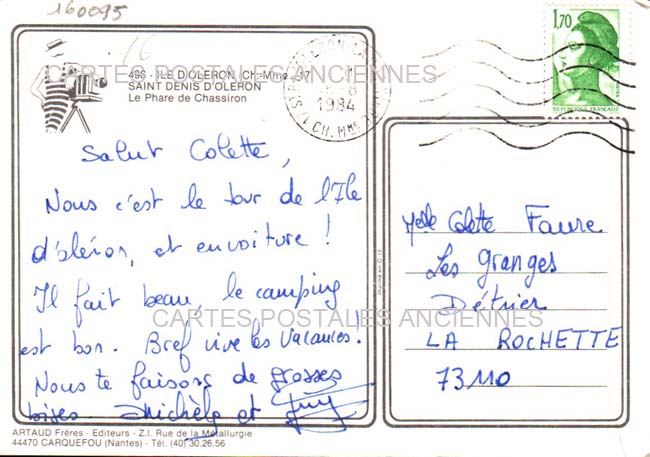 160095
16
CARTES POSTALES ANCIENNES
496 - ILE D'OLERON (Ch.-Mme 17)
SAINT DENIS D'OLERON
Le Phare de Chassiron
1984
CH. MME
1,70
REPUBLIQUE FRANÇAISE
Salut Colette,
Nous c'est le tour de l'Ile
d'oléron, et en voiture !
Il fait beau, le camping
est bon. Bref vive les Vacances !
Nous te faisons de grosses
bises. Michèle et Guy
Melle Colette Faure
Les Granges
Détrier
LA ROCHETTE
73110
CARTES POSTALES ANCIENNES
ARTAUD Frères - Editeurs - Z.I. Rue de la Métallurgie
44470 CARQUEFOU (Nantes) - Tél. (40) 30.26.56